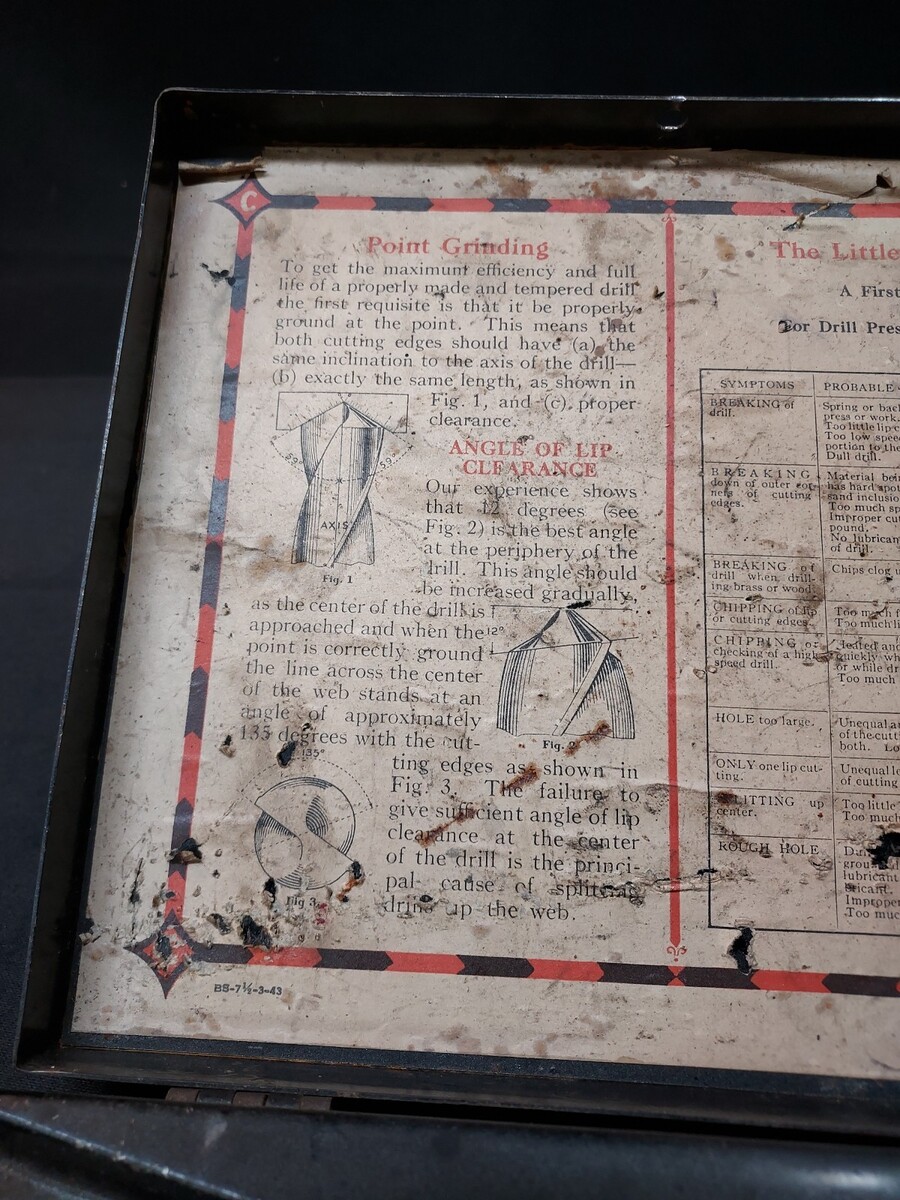 C
Point Grinding
To get the maximum efficiency and full
life of a properly made and tempered drill
the first requisite is that it be properly
ground at the point. This means that
both cutting edges should have (a) the
same inclination to the axis of the drill—
(b) exactly the same length, as shown in
Fig. 1, and (c) proper
clearance.
59°
59°
AXIS
Fig. 1
ANGLE OF LIP
CLEARANCE
Our experience shows
that 12 degrees (see
Fig. 2) is the best angle
at the periphery of the
drill. This angle should
be increased gradually,
as the center of the drill is
approached and when the
point is correctly ground
the line across the center
of the web stands at an
angle of approximately
135 degrees with the cut-
12°
Fig. 2
135°
Fig. 3
ting edges as shown in
Fig. 3. The failure to
give sufficient angle of lip
clearance at the center
of the drill is the princi-
pal cause of splitting
drills up the web.
BS-7½-3-43
The Little
A First
For Drill Pres
SYMPTOMS
PROBABLE
BREAKING of
drill.
Spring or bac
press or work.
Too little lip c
Too low spee
portion to the
Dull drill.
BREAKING
down of outer cor-
ners of cutting
edges.
Material bein
has hard spot
sand inclusio
Too much sp
Improper cut
pound.
No lubrican
of drill.
BREAKING of
drill when drill-
ing brass or wood
Chips clog u
CHIPPING of lip
or cutting edges.
Too much f
Too much li
CHIPPING or
checking of a high
speed drill.
Heated and
quickly wh
or while dr
Too much
HOLE too large.
Unequal an
of the cutt
both. Lo
ONLY one lip cut-
ting.
Unequal le
of cutting
SPLITTING up
center.
Too little
Too much
ROUGH HOLE
lubricant
bricant.
Improper
Too muc